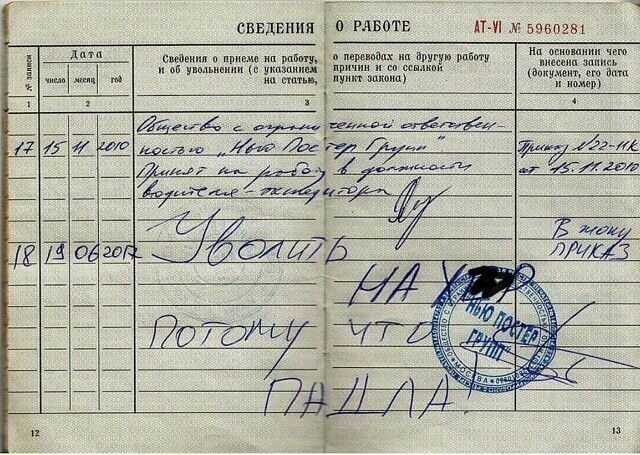 СВЕДЕНИЯ О РАБОТЕ
АТ-VI № 5960281
№ записи
Дата
число месяц год
Сведения о приеме на работу, о переводах на другую работу
и об увольнении (с указанием причин и со ссылкой
на статью, пункт закона)
На основании чего
внесена запись
(документ, его дата
и номер)
1 2 3 4
Общество с ограниченной ответствен-
17 15 11 2010 ностью „Нью Постер Групп" Приказ N22-11К
Принят на работу в должности от 15.11.2010
водителя-экспедитора
18 19 06 2012 Уволить В жопу
ПРИКАЗ
НА
ПОТОМУ ЧТО
ПАДЛА!
НЬЮ ПОСТЕР
ГРУПП
МОСКВА
12 13